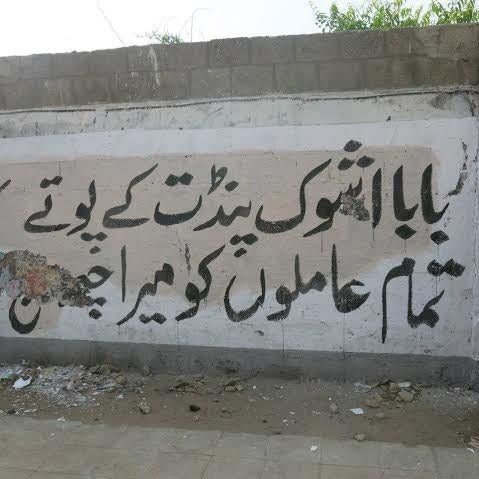 بابا اشوک پنڈت کے پوتے
تمام عاملوں کو میرا